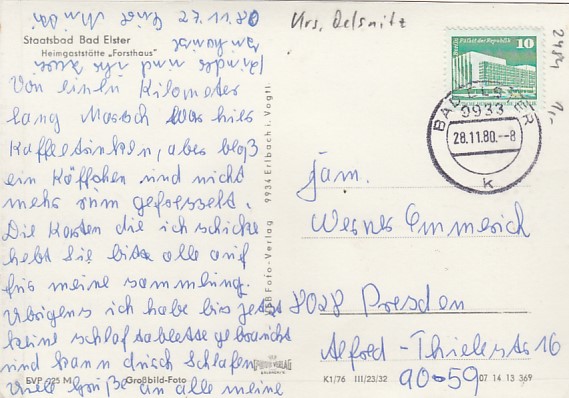 27.11.80
Krs. Oelsnitz
Staatsbad Bad Elster
Heimgaststätte „Forsthaus"
Von einen Kilometer
lang Marsch war hier
Kaffeetrinken, aber bloß
ein Käffchen und nicht
mehr rum gefresselt.
Die Karten die ich schicke
hebt Sie bitte alle auf
für meine sammlung.
Übrigens ich habe bis jetzt
keine schlaftablette gebraucht
und kann durch schlafen
viele Grüße an alle meine
Kinder und
EVP 025 M
Großbild-Foto
Foto-Verlag 9934 Erlbach i. Vogtl.
DEUTSCHE DEMOKRATISCHE REPUBLIK
10
BAD ELSTER
9933
28.11.80.-8
k
2484
1,-
Fam.
Werner Emmerich
8028 Dresden
Alfred-Thielestr 16
90-59
K1/76 III/23/32 07 14 13 369